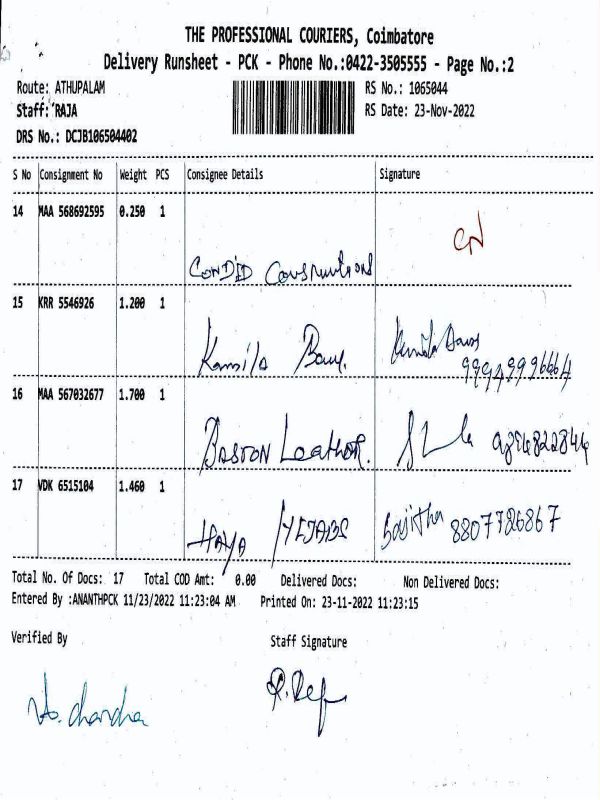 THE PROFESSIONAL COURIERS, Coimbatore
Delivery Runsheet - PCK - Phone No.:0422-3505555 - Page No.:2
Route: ATHUPALAM RS No.: 1065044
Staff: RAJA RS Date: 23-Nov-2022
DRS No.: DCJB106504402
S No Consignment No Weight PCS Consignee Details Signature
14 MAA 568692595 0.250 1
15 KRR 5546926 1.200 1
Kamila
16 MAA 567032677 1.700 1
BASTON Leather.
17 VDK 6515104 1.460 1
HAYA Sajitha 8807786867
Total No. Of Docs: 17 Total COD Amt: 0.00 Delivered Docs: Non Delivered Docs:
Entered By :ANANTHPCK 11/23/2022 11:23:04 AM Printed On: 23-11-2022 11:23:15
Verified By Staff Signature